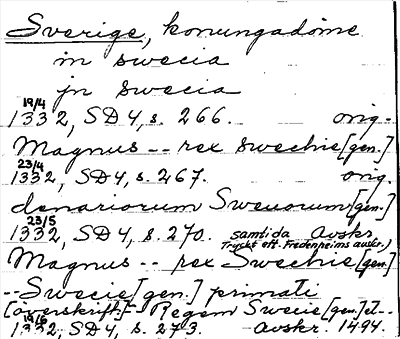 Sverige, konungadöme
in swecia
jn swecia
19/4
1332, SD4, s. 266. orig.
Magnus -- rex swechie [gen.]
23/4
1332, SD4, s. 267. orig.
denariorum Sweuorum [gen.]
23/5
1332, SD4, s. 270. samtida Avskr.
Tryckt eft. Fredenheims avskr.)
Magnus -- rex Swechie [gen.]
-- Swecie [gen.] primati
[överskrift]- Regem Swecie [gen.] et --
1332, SD4, s. 273. avskr. 1494.